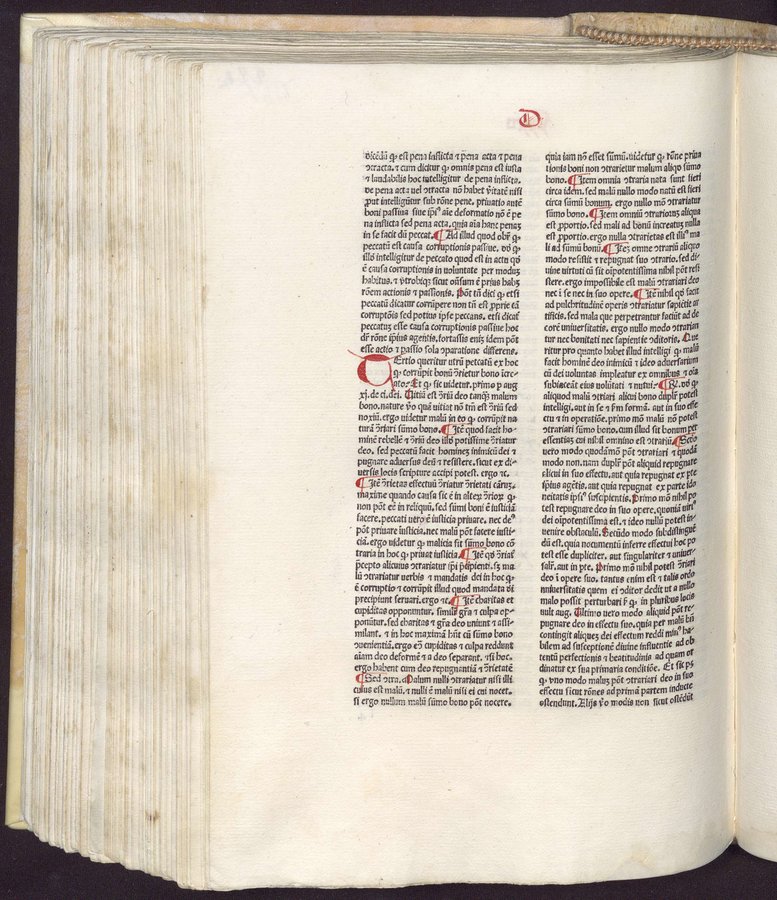 D
dicēdū ꝙ est pena inflicta ⁊ pena acta ⁊ pena
ꝯtracta. ⁊ cum dicitur ꝙ omnis pena est iusta
⁊ laudabilis hoc intelligitur de pena inflicta.
de pena acta vel ꝯtracta nō habet vitatē nisi
ꝓut intelligūtur sub rōne pene. priuatio autē
boni passiua siue ipsiꝰ aīe deformatio nō ē pe
na inflicta sed pena acta. quia aīa hanc penaꝫ
in se facit dū peccat. Ad illud quod obr̄ ꝙ
peccatū est causa corruptionis passiue. dō ꝙ
illō intelligitur de peccato quod est in actu qō
ē causa corruptionis in voluntate per modū
habitus. ⁊ vtrobiqꝫ sicut oñsum ē prius habꝫ
rōem actionis ⁊ passionis. Pōt tñ dici ꝙ etsi
peccatū dicatur corrūpere non tñ est ꝓprie cā
corruptōis sed potius ipse peccans. etsi dicat̄
peccatuꝫ esse causa corruptionis passiue hoc
dr̄ rōne ipius agentis. fortassis eniꝫ idem pōt
esse actio ⁊ passio sola ꝯparatione differens.
TErtio queritur vtrū peccatū ex hoc
ꝙ corrupit bonū ꝯtrietur bono īcre
ato. Et ꝙ sic videtur. primo p aug
xj. de ci. dei. Vitiū est ꝯriū deo tanqꝫ malum
bono. nature vo quā vitiat nō tm̄ est ꝯriū sed
noxiū. ergo videtur malū in eo ꝙ corrūpit na
turā ꝯtrari sūmo bono. Itē quod facit ho-
minē rebellē ⁊ ꝯriū deo illō potissime ꝯriatur
deo. sed peccatū facit homines inimicī dei ⁊
pugnare aduersus deū ⁊ resistere. sicut ex di-
uersis locis scripture accipi potest. ergo ⁊c.
Itē ꝯrietas effectuū ꝯriatur ꝯrietati cāruꝫ.
maxime quando causa sic ē in alteꝝ ꝯrioꝝ ꝙ
non pōt eē in reliquū. sed sūmi boni ē iusticiā
facere. peccati vero ē iusticiā priuare. nec deꝰ
pōt priuare iusticia. nec malū pōt facere iusti-
ciā. ergo videtur ꝙ malicia sit sūmo bono cō
traria in hoc ꝙ priuat iusticia. Itē qō ꝯriat̄
ꝑcepto alicuius ꝯtrariatur ipi ꝑcipienti. sꝫ ma
lū ꝯtrariatur verbis ⁊ mandatis dei in hoc ꝙ
ē corruptio ⁊ corrūpit illud quod mandata dī
precipiunt seruari. ergo ⁊c. Itē charitas et
cupiditas opponuntur. similiter gr̄a ⁊ culpa op-
ponūtur. sed charitas ⁊ gr̄a deo vniunt ⁊ assi-
milant. ⁊ in hoc maximā hn̄t cū sūmo bono
ꝯuenientiā. ergo eō cupiditas ⁊ culpa reddunt
aīam deo deformē ⁊ a deo separant. ⁊ si hoc.
ergo habent cum deo repugnantiā ⁊ ꝯrietatē
Sed ꝯtra. Malum nulli ꝯtrariatur nisi illi
cuius est malū. ⁊ nulli ē malū nisi ei cui nocet.
si ergo nullum malū sūmo bono pōt nocere.
quia iam nō esset sūmū. videtur ꝙ rōne priua
tionis boni non ꝯtrarietur malum aliqō sūmo
bono. Item omnia ꝯtraria nata sunt fieri
circa idem. sed malū nullo modo natū est fieri
circa sūmū bonum. ergo nullo mō ꝯtrariatur
sūmo bono. Item omniū ꝯtrarioꝝ aliqua
est ꝓportio. sed mali ad bonū increatū nulla
est ꝓportio. ergo nulla ꝯtrarietas est illiꝰ ma
li ad sūmū bonū. Iteꝫ omne ꝯtrariū aliquo
modo resistit ⁊ repugnat suo ꝯtrario. sed di-
uine virtuti cū sit oīpotentissima nihil pōt resi
stere. ergo impossibile est malū ꝯtrariari deo
nec ī se nec in suo opere. Itē nihil qō facit
ad pulchritudinē operis ꝯtrariatur sapiētie ar
tificis. sed mala que perpetrantur faciūt ad de
corē vniuersitatis. ergo nullo modo ꝯtrarian
tur nec bonitati nec sapientie ꝯditoris. Que
ritur pro quanto habet illud intelligi ꝙ malū
facit hominē deo inimicū ⁊ ideo aduersarium
cū dei voluntas impleatur ex omnibus ⁊ oīa
subiaceāt eius volūtati ⁊ nutui. Rñ. dō ꝙ
aliquod malū ꝯtrari alicui bono dupl̄r potest
intelligi. aut in se ⁊ in formā. aut in suo effe
ctu ⁊ in operatiōe. primo mō nō malū potest
ꝯtrariari sūmo bono. cum illud sit bonum per
essentiaꝫ cui nihil omnino est ꝯtrariū. Secō
vero modo quodāmō pōt ꝯtrariari ⁊ quodā
modo non. nam duplr̄ pōt aliquid repugnare
alicui in suo effectu. aut quia repugnat ex ꝑte
ipsius agētis. aut quia repugnat ex parte ido
neitatis ipsiꝰ suscipientis. Primo mō nihil po
test repugnare deo in suo opere. quoniā virtꝰ
dei oīpotentissima est. ⁊ ideo nullū potest in-
uenire obstaculū. Secūdo modo subdistinguē
dū est. quia nocumentū inferre effectui hoc po
test esse dupliciter. aut singulariter ⁊ vniuer-
salr̄. aut in ꝑte. Primo mō nihil potest ꝯriari
deo ī opere suo. tantus enim est ⁊ talis ordo
vniuersitatis quem ei ꝯditor dedit vt a nullo
malo possit perturbari ꝙ in pluribus locis
vult aug. Ultimo vero modo aliquid pōt re-
pugnare deo in effectu suo. quia per malū hn̄
contingit aliqueꝫ dei effectum reddi minꝰ ha-
bilem ad susceptionē diuine influentie ad ob-
tentū perfectionis ⁊ beatitudinis ad quam or
dinatur ex sua primaria conditiōe. Et sic pꝫ
ꝙ vno modo maluꝫ pōt ꝯtrariari deo in suo
effectu sicut rōnes ad primā partem inducte
ostendunt. Alijs vo modis non sicut ostēdūt